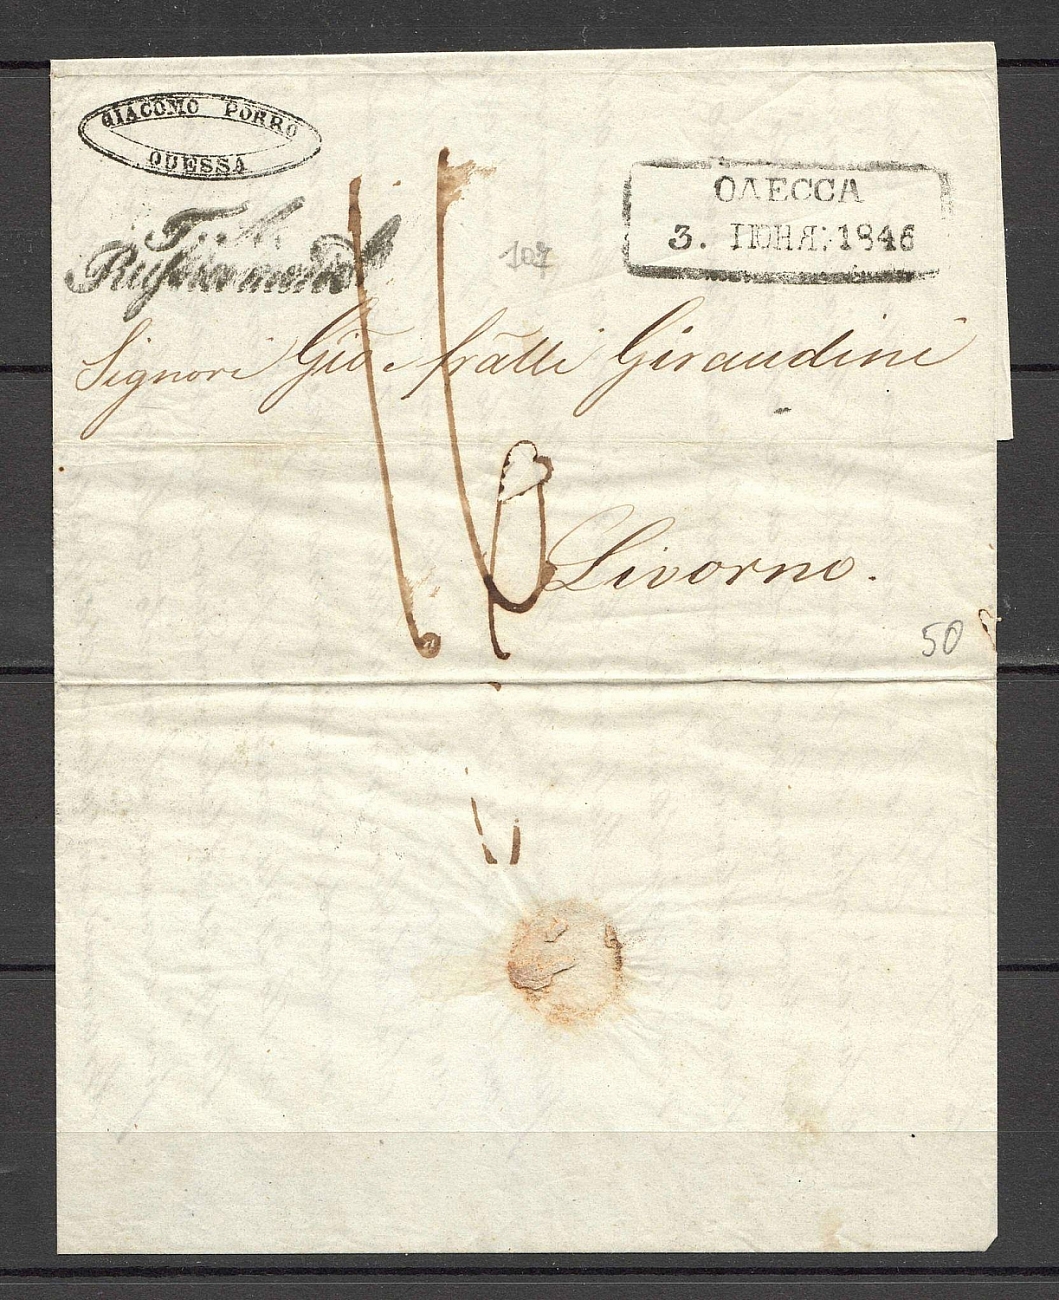 GIACOMO PORRO
ODESSA
ОДЕССА
3. ІЮНЯ: 1846
T. A.
107
Signori Gio e fratelli Giraudini
16
Livorno.
50